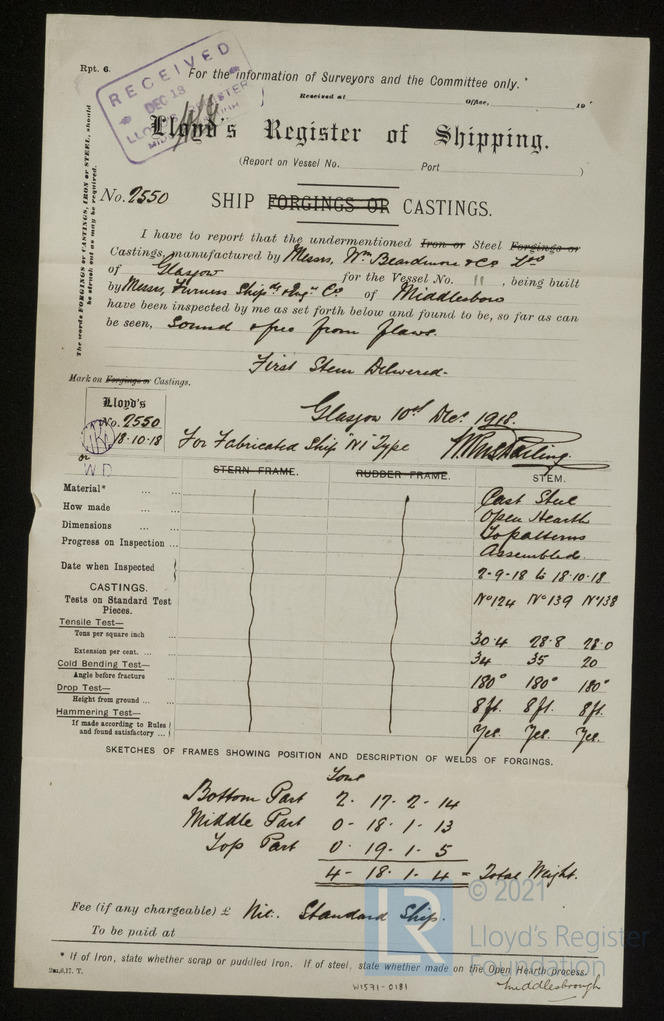 Rpt. 6.
RECEIVED
DEC 18
For the information of Surveyors and the Committee only.
Received at Office, 19
Lloyd's Register of Shipping.
(Report on Vessel No. Port )
The words FORGINGS or CASTINGS, IRON or STEEL, should
be struck out as may be required.
No. 2550
SHIP FORGINGS OR CASTINGS.
I have to report that the undermentioned Iron or Steel Forgings or
Castings, manufactured by Messrs, Wm Beardmore & Co Ltd
of Glasgow for the Vessel No. 11, being built
by Messrs, Furness Shipg & Engg Co of Middlesboro
have been inspected by me as set forth below and found to be, so far as can
be seen, Sound & free from flaws.
First Stem Delivered.
Mark on Forgings or Castings.
Lloyd's
No. 2550
18.10.18
or
WD
Glasgow 10th Decr 1918.
For Fabricated Ship "N" Type
STERN FRAME. RUDDER FRAME. STEM.
Material* Cast Steel
How made Open Hearth
Dimensions To patterns
Progress on Inspection Assembled.
Date when Inspected 2-9-18 to 18.10.18
CASTINGS.
Tests on Standard Test
Pieces. No 124 No 139 No 138
Tensile Test—
Tons per square inch 30.4 28.8 28.0
Extension per cent. 34 35 20
Cold Bending Test—
Angle before fracture 180° 180° 180°
Drop Test—
Height from ground 8ft. 8ft. 8ft.
Hammering Test—
If made according to Rules
and found satisfactory Yes. Yes. Yes.
SKETCHES OF FRAMES SHOWING POSITION AND DESCRIPTION OF WELDS OF FORGINGS.
Tons
Bottom Part 2. 17. 2. 14
Middle Part 0. 18. 1. 13
Top Part 0. 19. 1. 5
4 - 18. 1. 4 = Total Weight.
Fee (if any chargeable) £ Nil. Standard Ship.
To be paid at
* If of Iron, state whether scrap or puddled Iron. If of steel, state whether made on the Open Hearth process.
2m,6,17. T.
Middlesbrough
W1571-0181
LR
© 2021
Lloyd's Register
Foundation